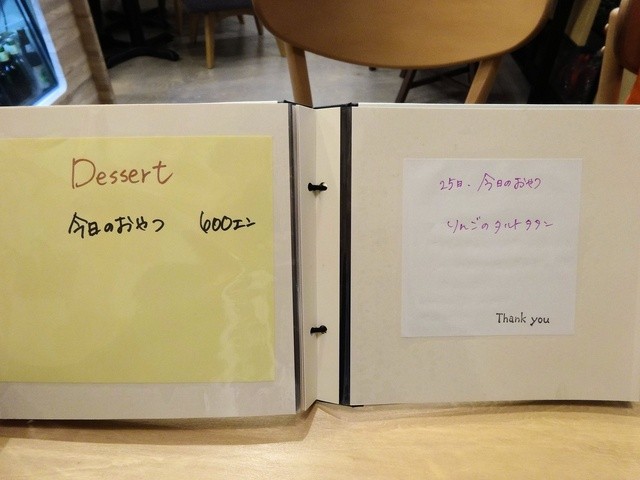 Dessert
今日のおやつ 600エン
25日. 今日のおやつ
りんごのタルトタタン
Thank you